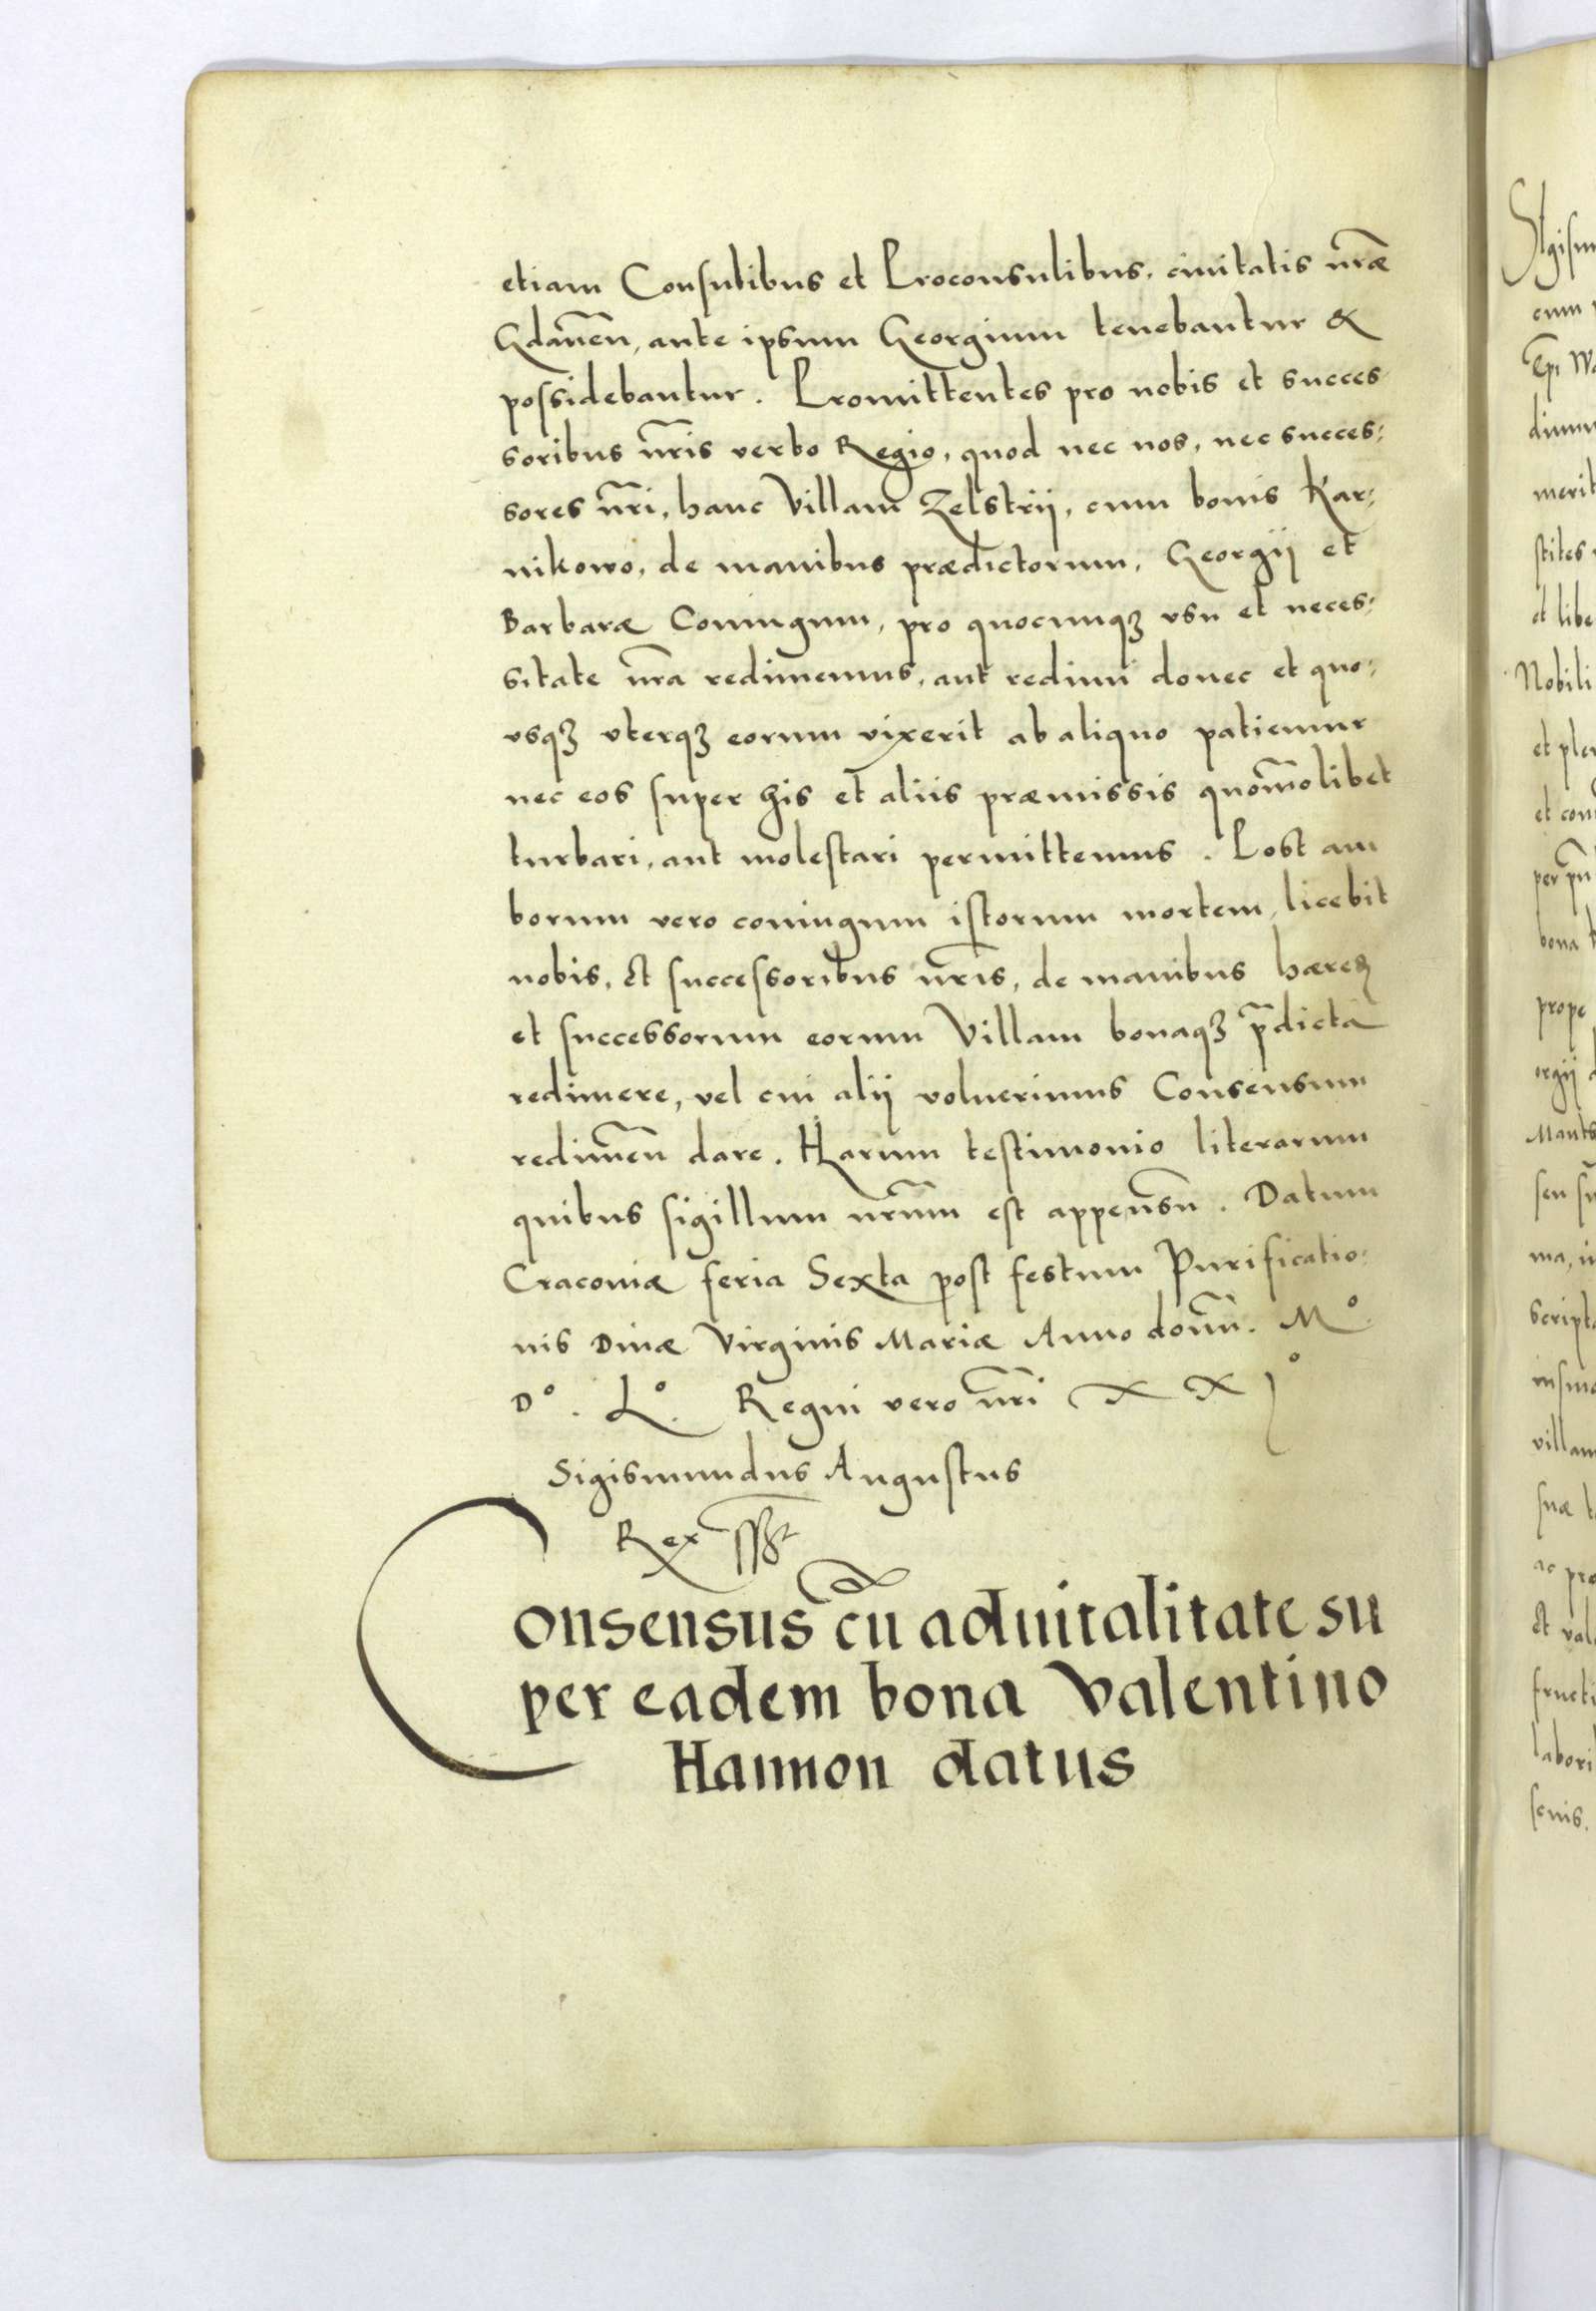 etiam Consulibus et Proconsulibus, ciuitatis nr̃æ
Gdanẽn, ante ipsum Georgium tenebantur &
possidebantur. Promittentes pro nobis et succes
soribus nr̃is verbo Regio, quod nec nos, nec succes:
sores nr̃i, hanc Villam Zelstrij, cum bonis Kar:
nikowo, de manibus prædictorum, Georgij et
Barbaræ Coniugum, pro quocunqꝫ vsu et neces:
sitate nr̃a redimemus, aut redimi donec et quo:
vsqꝫ vterqꝫ eorum vixerit ab aliquo patiemur
nec eos super his et aliis præmissis quom̃olibet
turbari, aut molestari permittemus. Post am
borum vero coniugum istorum mortem, licebit
nobis, et successoribus nr̃is, de manibus hæreꝝ
et successorum eorum Villam bonaqꝫ p̃dicta
redimere, vel cui alij voluerimus Consensum
redimẽn dare. Harum testimonio literarum
quibus sigillum nr̃um est appensũ. Datum
Cracouiæ feria Sexta post festum Purificatio:
nis Diuæ Virginis Mariæ Anno domĩ. Mº.
Dº. Lº. Regni vero nr̃i XXjº
Sigismundus Augustus
Rex sszt
Consensus cũ aduitalitate su
per eadem bona Valentino
Hannon datus
Sigism
cum
Ep̃i
merit
stites
et libe
Nobili
et con
bona
prope
orgij
Mants
seu
ma,
scripta
villam
suæ
ac
et
labori